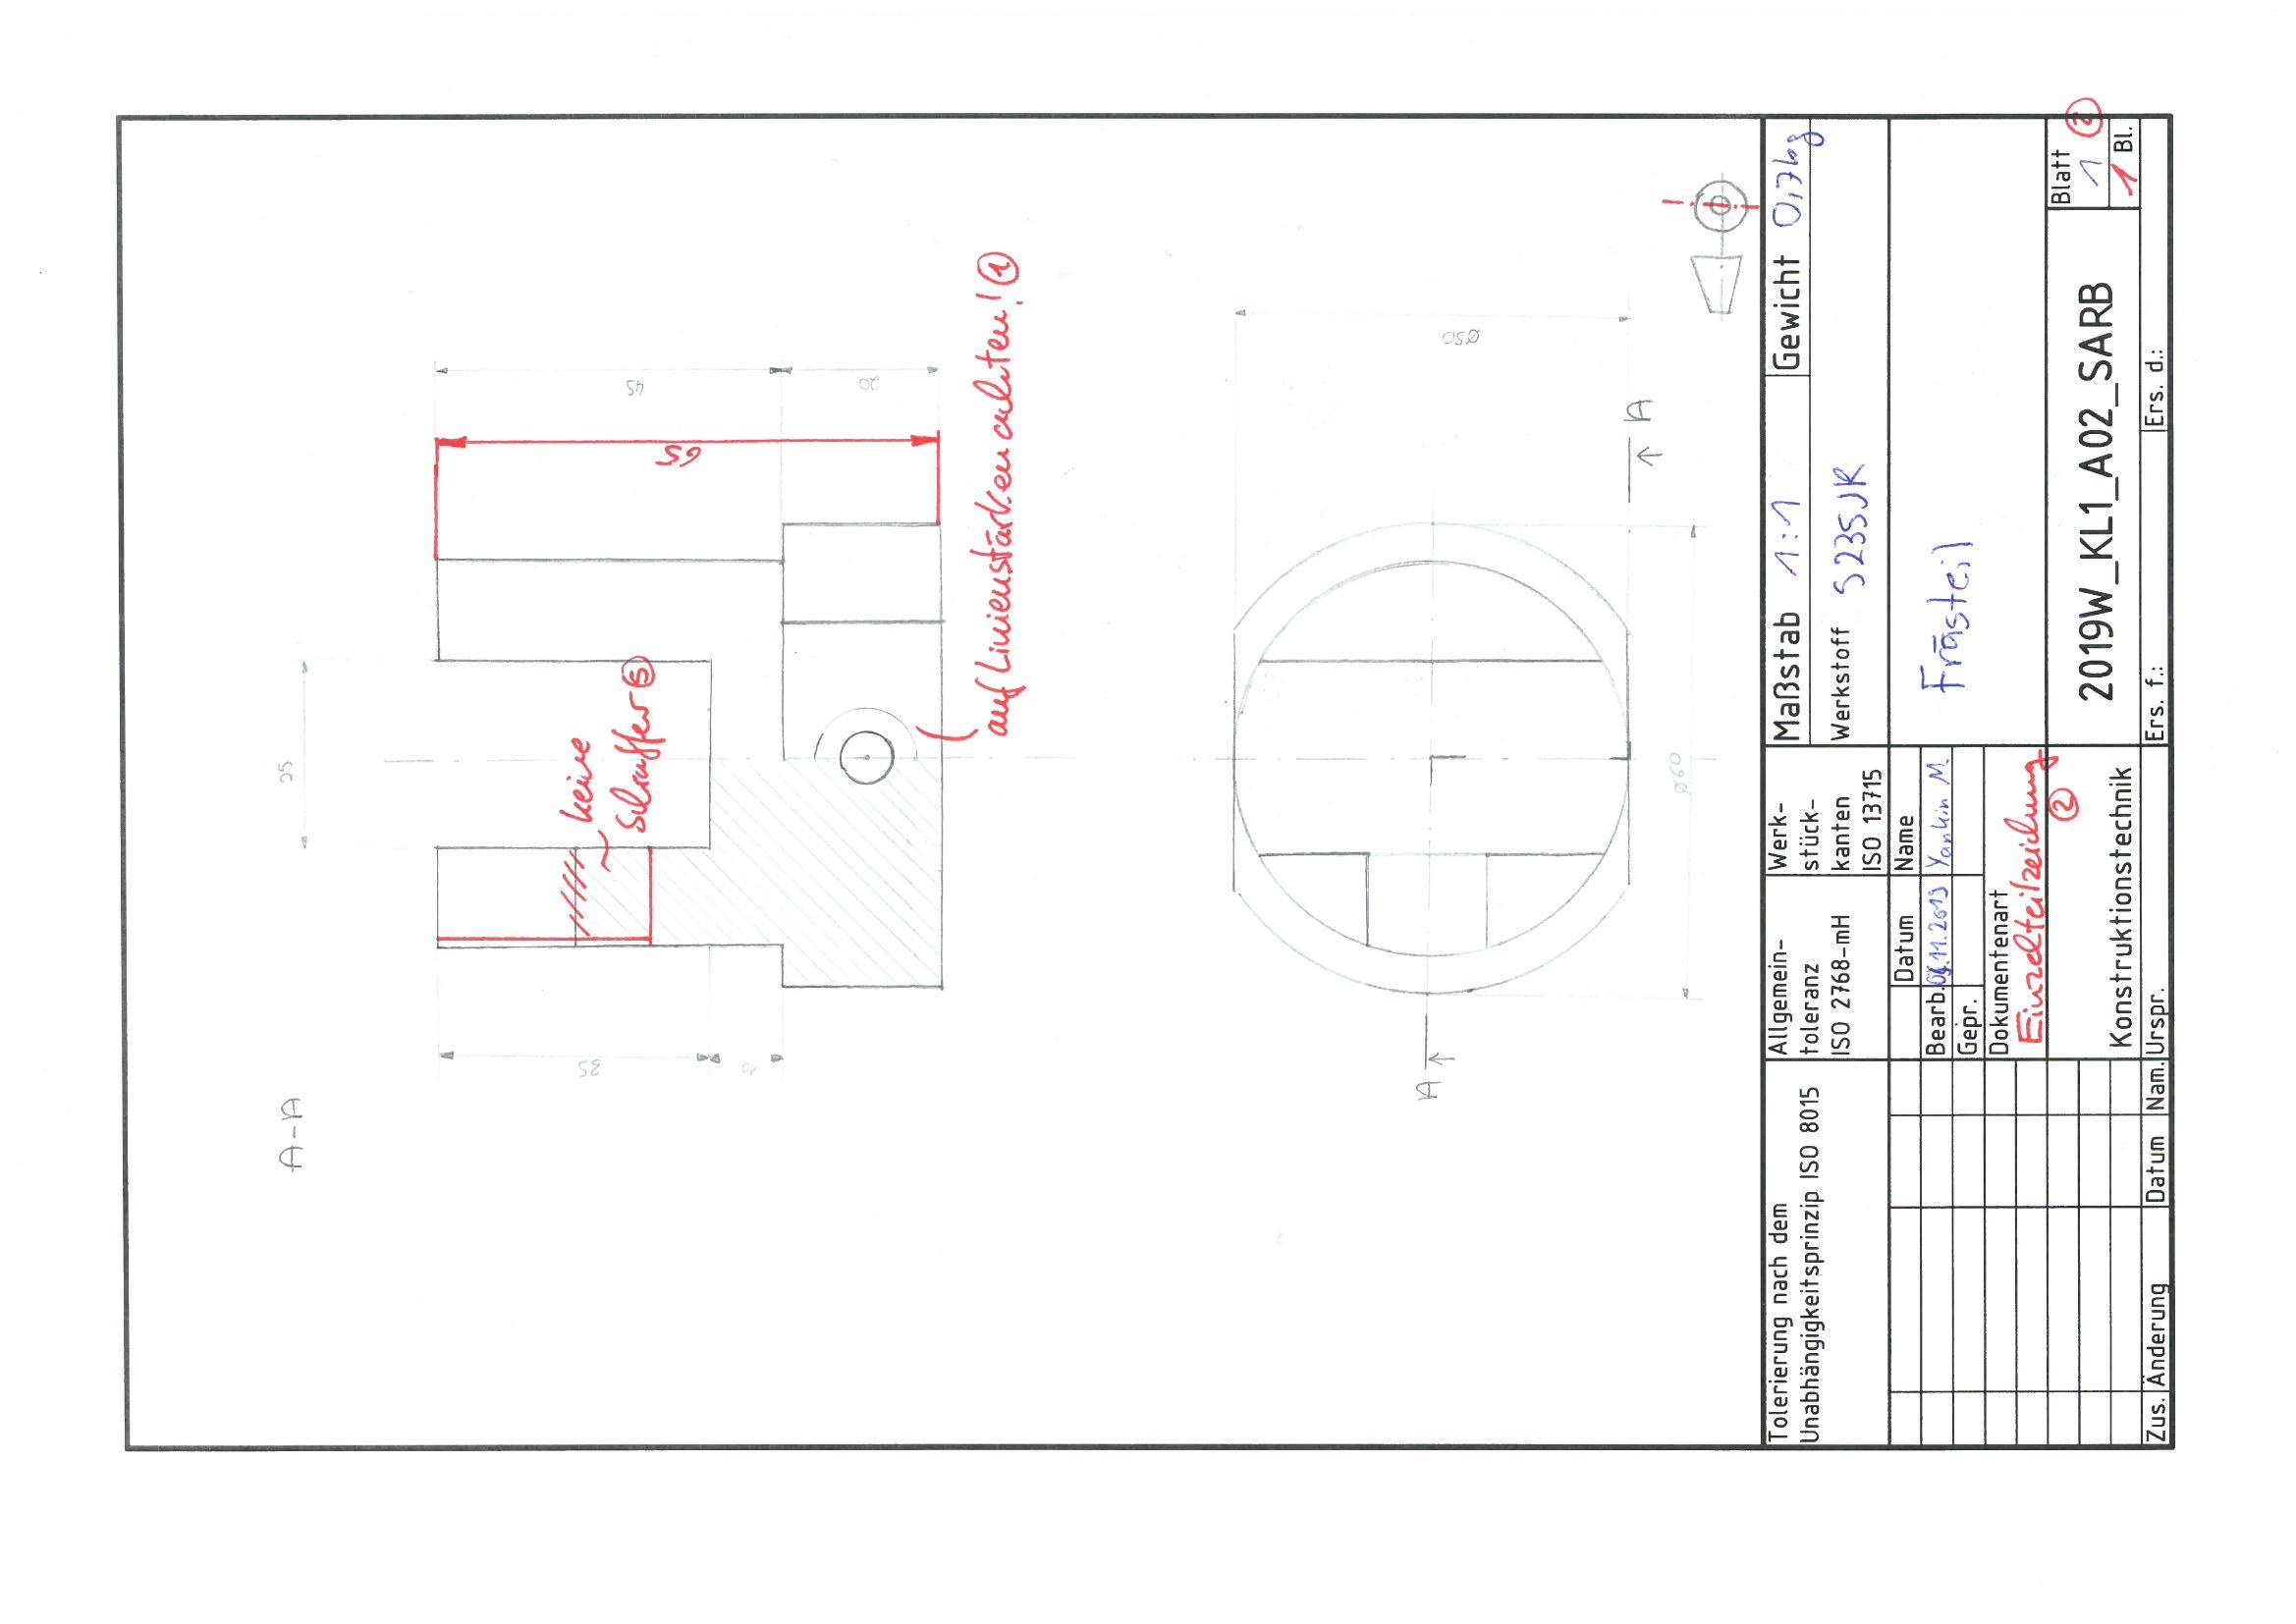 A-A
25
35
10
45
20
65
keine
Schraffer ⑤
auf Linienstärken achten! ①
⌀50
⌀60
A
A
Tolerierung nach dem
Unabhängigkeitsprinzip ISO 8015
Allgemein-
toleranz
ISO 2768-mH
Werk-
stück-
kanten
ISO 13715
Maßstab 1:1
Gewicht 0,7kg
Werkstoff S235JR
Datum
Name
Bearb. 04.11.2019 Yankin M.
Gepr.
Frästeil
Dokumentenart
Einzelteilzeichnung
②
Konstruktionstechnik
2019W_KL1_A02_SARB
Blatt
1
②
1 Bl.
Zus.
Änderung
Datum
Nam.
Urspr.
Ers. f.:
Ers. d.: